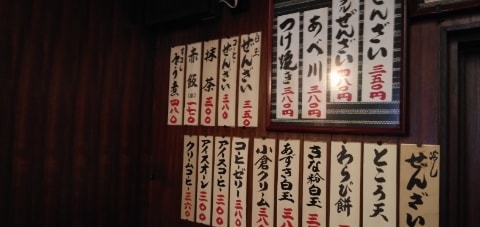 ぜんざい 三五〇円
ぜんざい
あべ川 三八〇円
つけ焼き 三八〇円
白玉 ぜんざい 三五〇
ぜんざい 三八〇
抹茶 三〇〇
赤飯 一七〇
煮 四八〇
冷し ぜんざい
ところ天
わらび餅
きな粉白玉
あずき白玉
小倉クリーム
コーヒーゼリー 三六〇
アイスコーヒー 三〇〇
アイスオーレ 三〇〇
クリームコーヒー 三六〇